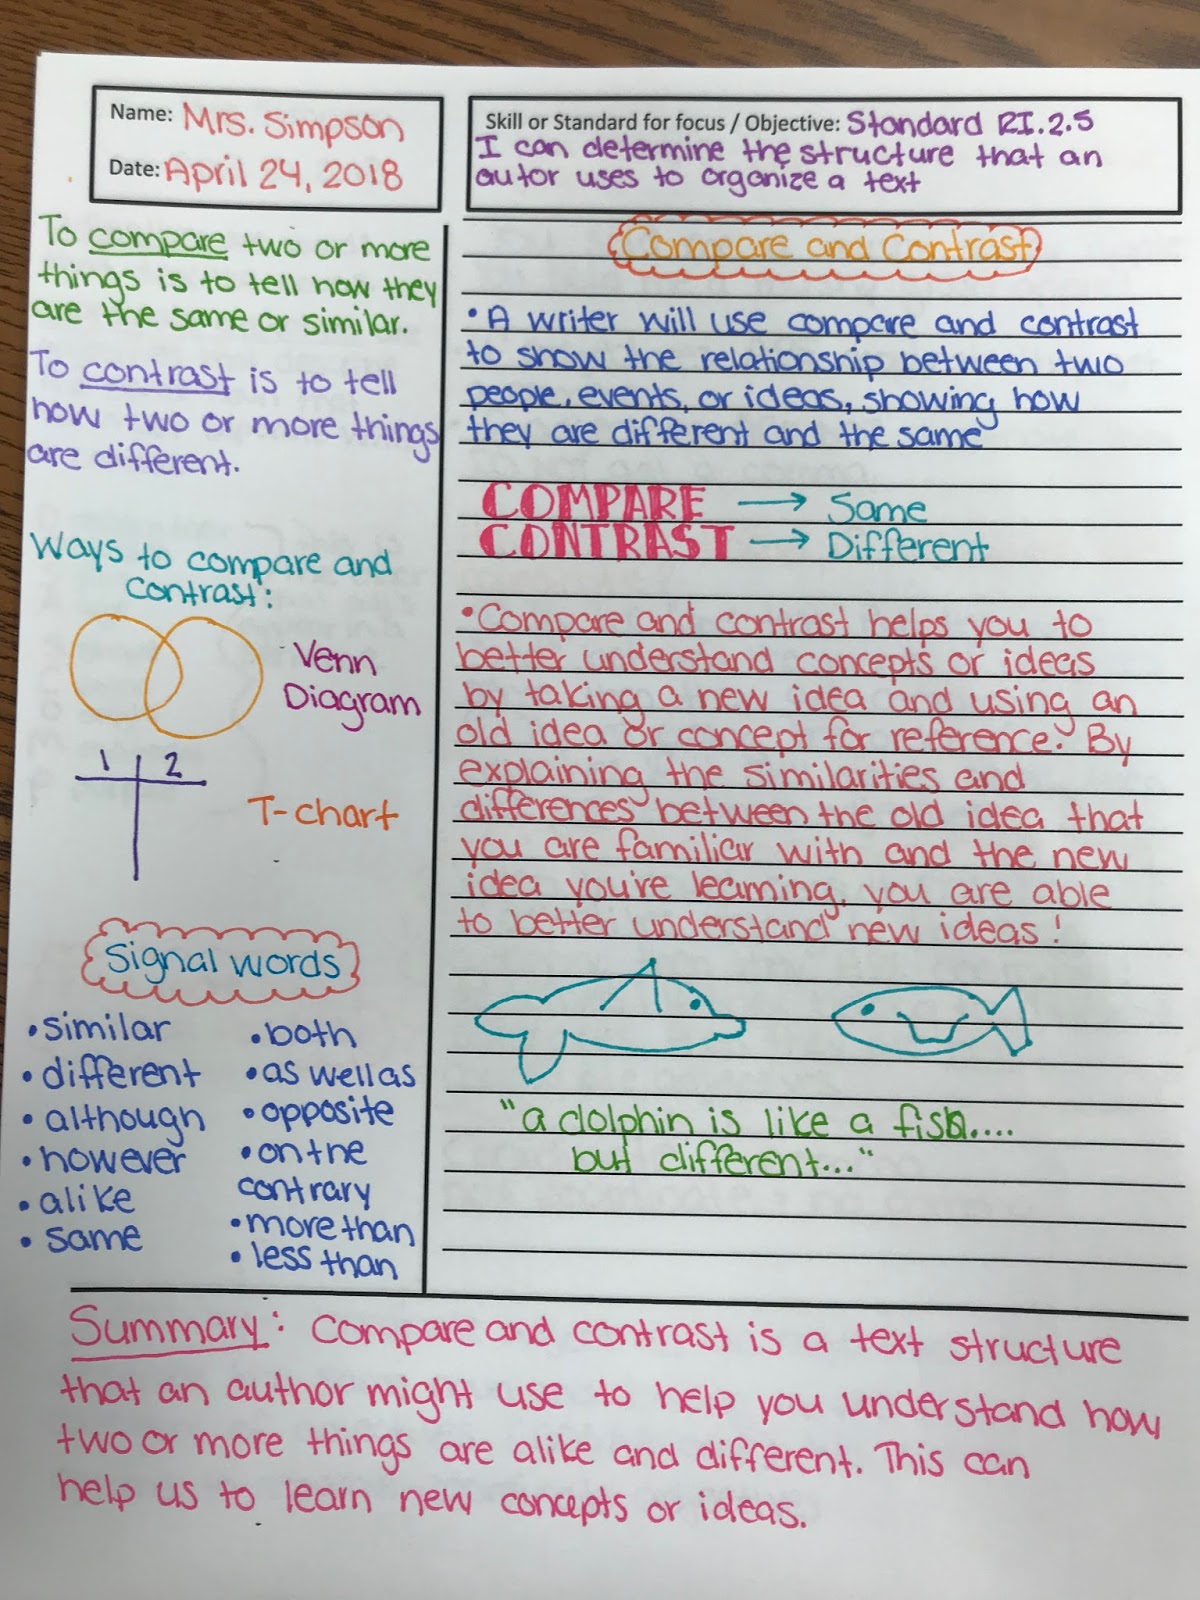 Name: Mrs. Simpson
Date: April 24, 2018
Skill or Standard for focus / Objective: Standard RI.2.5
I can determine the structure that an
autor uses to organize a text
To compare two or more
things is to tell how they
are the same or similar.
To contrast is to tell
how two or more things
are different.
Ways to compare and
contrast:
Venn
Diagram
1 2
T-chart
Signal words
• similar
• different
• although
• however
• alike
• same
• both
• as well as
• opposite
• on the
contrary
• more than
• less than
Compare and Contrast
• A writer will use compare and contrast
to show the relationship between two
people, events, or ideas, showing how
they are different and the same
COMPARE → Same
CONTRAST → Different
• Compare and contrast helps you to
better understand concepts or ideas
by taking a new idea and using an
old idea or concept for reference. By
explaining the similarities and
differences between the old idea that
you are familiar with and the new
idea you're learning, you are able
to better understand new ideas!
"a dolphin is like a fish....
but different..."
Summary: Compare and contrast is a text structure
that an author might use to help you understand how
two or more things are alike and different. This can
help us to learn new concepts or ideas.